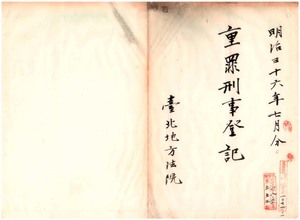 明治三十六年七月分
重罪刑事登記
臺北地方法院